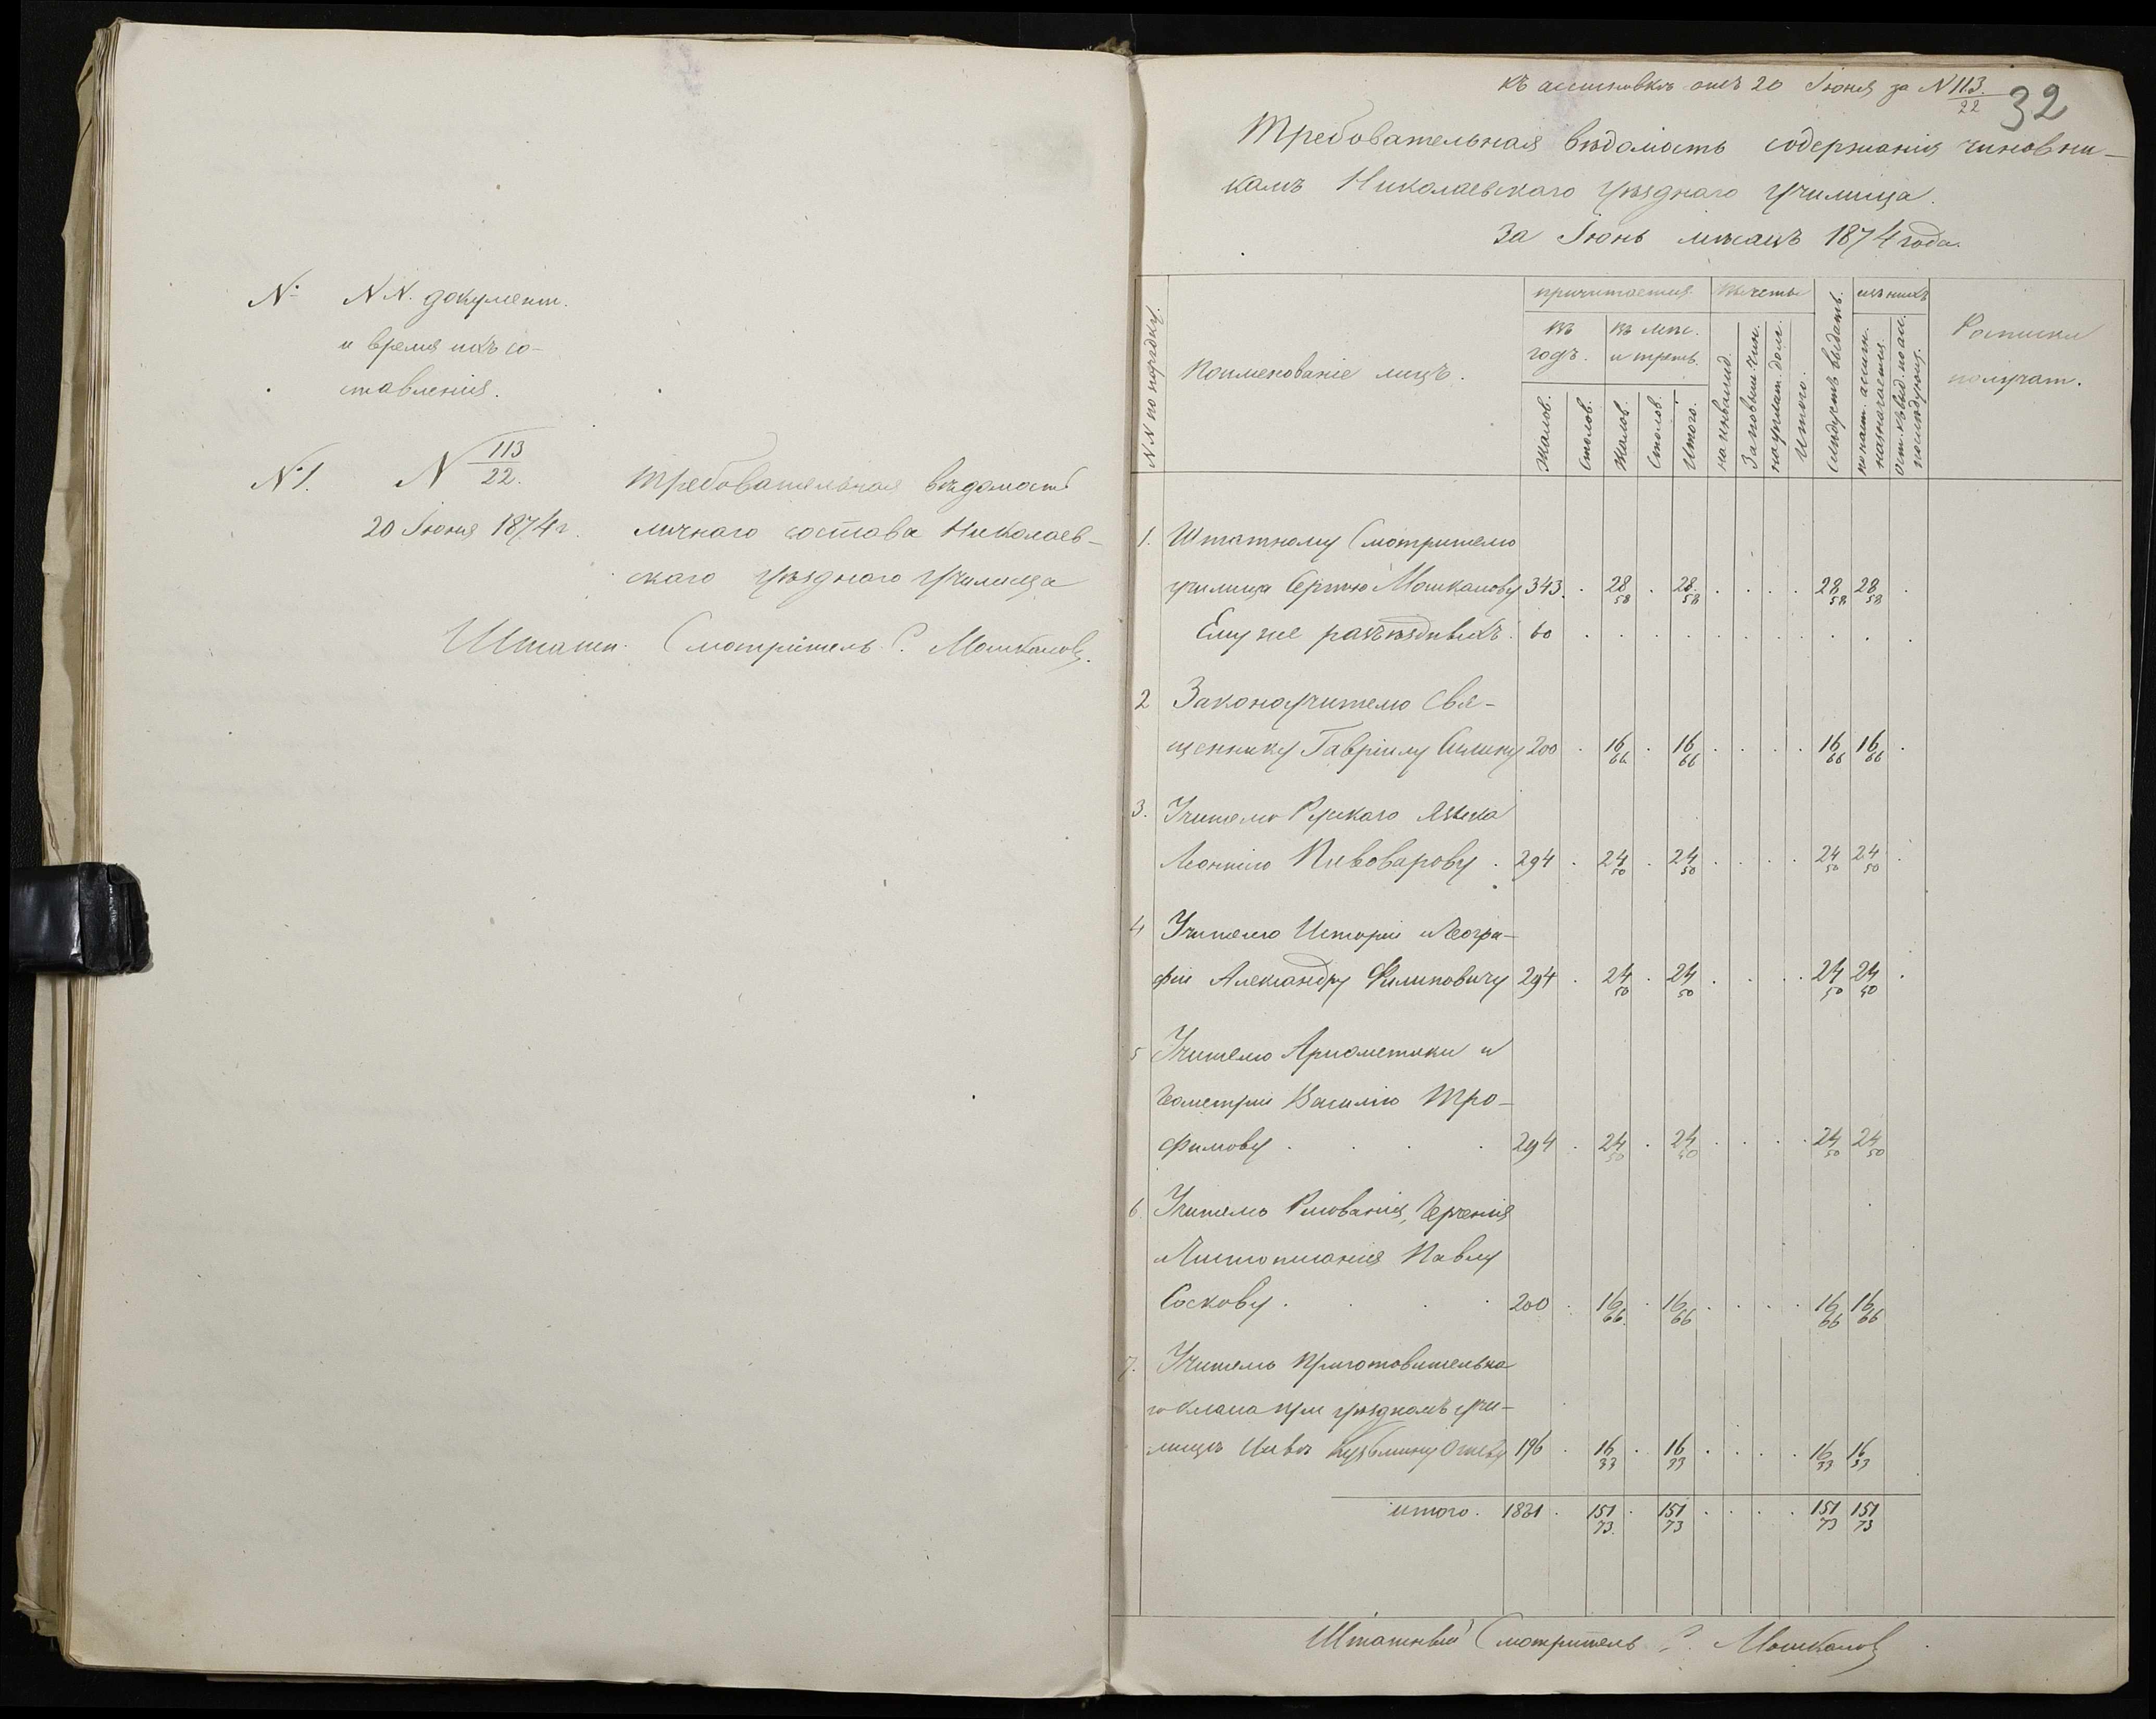 № N N. документ.
и время ихъ со-
ставленія.
№ 1. N 113/22. Требовательная вѣдомость
20 Іюня 1874 г. личнаго состава Николаев-
скаго уѣзднаго Училища
Штатн. Смотритель С. Мошкаловъ.
къ ассигновкѣ отъ 20 Іюня за N 113/22
32
Требовательная вѣдомость содержанія чиновни-
камъ Николаевскаго Уѣзднаго Училища.
За Іюнь мѣсяцъ 1874 года.
N N по порядку.
Поименованіе лицъ.
причитается
въ годъ.
въ мѣс. и треть.
Жалов.
Столов.
Жалов.
Столов.
Итого.
Вычеты
на инвалид.
За повыш. чин.
на уплат. долг.
Итого.
Слѣдуетъ выдать.
изъ нихъ
по наст. ассигн. назначается.
ост. къ выд. по ас. послѣдующ.
Росписки
получат.
1. Штатному Смотрителю
училища Сергѣю Мошкалову 343. . 28 58 . 28 58 . . . . 28 58 28 58 .
Ему же разъѣздныхъ. 60 . . . . . . . . . . .
2 Законоучителю Свя-
щеннику Гавріилу 200 . 16 66 . 16 66 . . . . 16 66 16 66 .
3. Учителю Рускаго Языка
Леонтію Пивоварову . 294 . 24 50 . 24 50 . . . . 24 50 24 50 .
4 Учителю Исторіи и Геогра-
фіи Александру Филиповичу 294 . 24 50 . 24 50 . . . . 24 50 24 50 .
5 Учителю Ариѳметики и
Геометріи Василію Тро-
фимову . . . . 294 . 24 50 . 24 50 . . . . 24 50 24 50
6. Учителю Рисованія, Черченія
и Чистописанія Павлу
Соскову . . . . 200 . 16 66 . 16 66 . . . . 16 66 16 66
7. Учителю Приготовительна
го класа при уѣздномъ учи-
лищѣ Кузьмину 196 . 16 33 . 16 33 . . . . 16 33 16 33
итого. 1821 . 151 73 . 151 73 . . . . 151 73 151 73
Штатный Смотритель С. Мошкаловъ